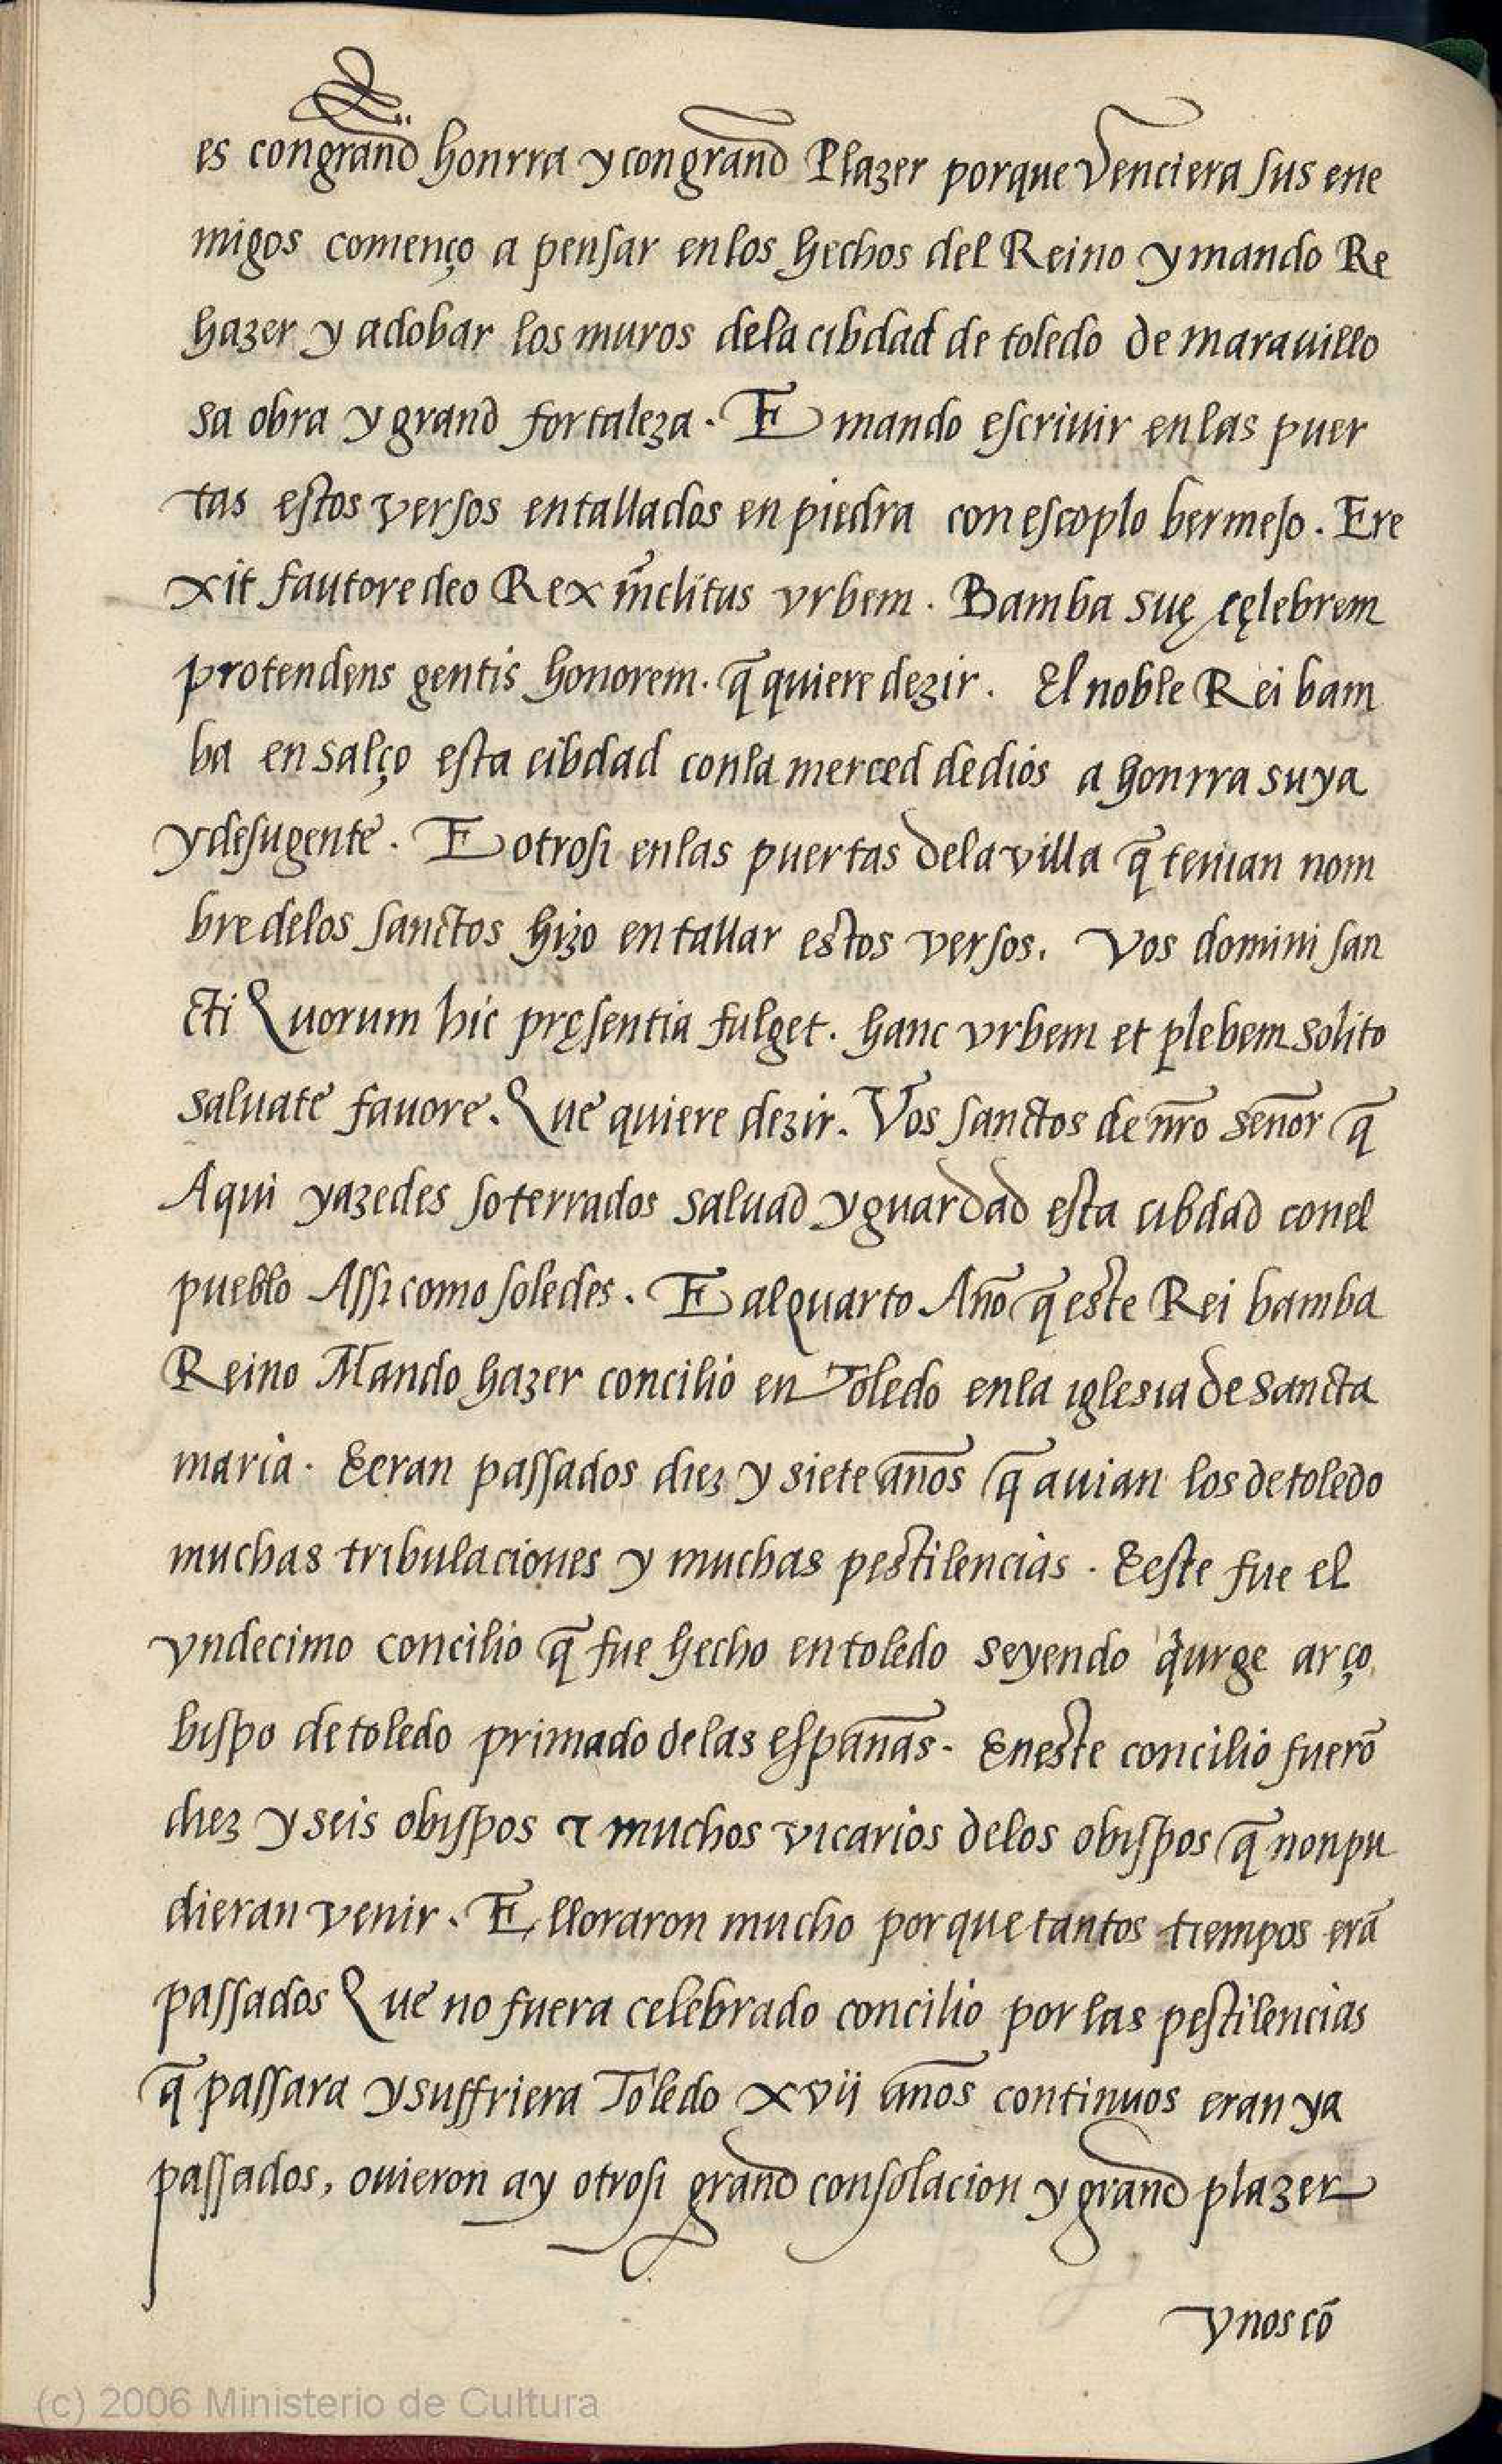 es con grand honrra y con grand Plazer porque Venciera sus ene
migos començo a pensar enlos hechos del Reino y mando Re
hazer y adobar los muros dela cibdad de toledo de marauillo
sa obra y grand fortaleza. E mando escriuir enlas puer
tas estos versos entallados en piedra con escoplo bermejo. Ere
xit fautore deo Rex inclitus vrbem. Bamba suę cęlebrem
protendens gentis honorem. q̃ quiere dezir. El noble Rei bam
ba ensalço esta cibdad conla merced de dios a honrra suya
y de su gente. E otrosi enlas puertas dela villa q̃ tenian nom
bre delos sanctos hizo entallar estos versos. Vos domini san
cti Quorum hic pręsentia fulget. hanc vrbem et plebem solito
saluate fauore. Que quiere dezir. Vos sanctos de nr̃o señor q̃
Aqui yazedes soterrados saluad y guardad esta cibdad conel
pueblo Assi como soledes. E al quarto Año q̃ este Rei bamba
Reino Mando hazer concilio en Toledo enla iglesia de sancta
maria. E eran passados diez y siete años q̃ auian los de toledo
muchas tribulaciones y muchas pestilencias. E este fue el
vndecimo concilio q̃ fue hecho en toledo seyendo qurge arço
bispo de toledo primado delas españas. En este concilio fuerõ
diez y seis obispos τ muchos vicarios delos obispos q̃ non pu
dieran venir. E lloraron mucho porque tantos tiempos erã
passados Que no fuera celebrado concilio por las pestilencias
q̃ passara y suffriera Toledo xvij años continuos eran ya
passados, ouieron ay otrosi grand consolacion y grand plazer
vnos cõ
(c) 2006 Ministerio de Cultura